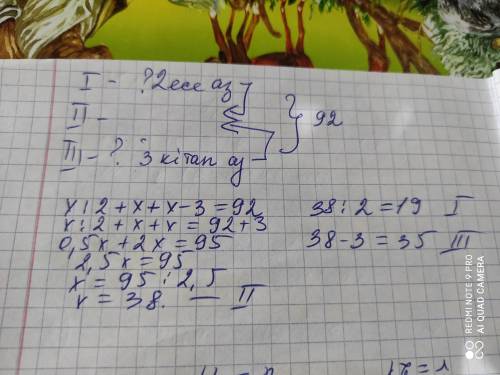 I - ? 2 есе аз
II -
III - ? 3 кітап аз
} 92
x : 2 + x + x - 3 = 92
x : 2 + x + x = 92 + 3
0,5x + 2x = 95
2,5x = 95
x = 95 : 2,5
x = 38. — II
38 : 2 = 19 I
38 - 3 = 35 III
REDMI NOTE 9 PRO
AI QUAD CAMERA